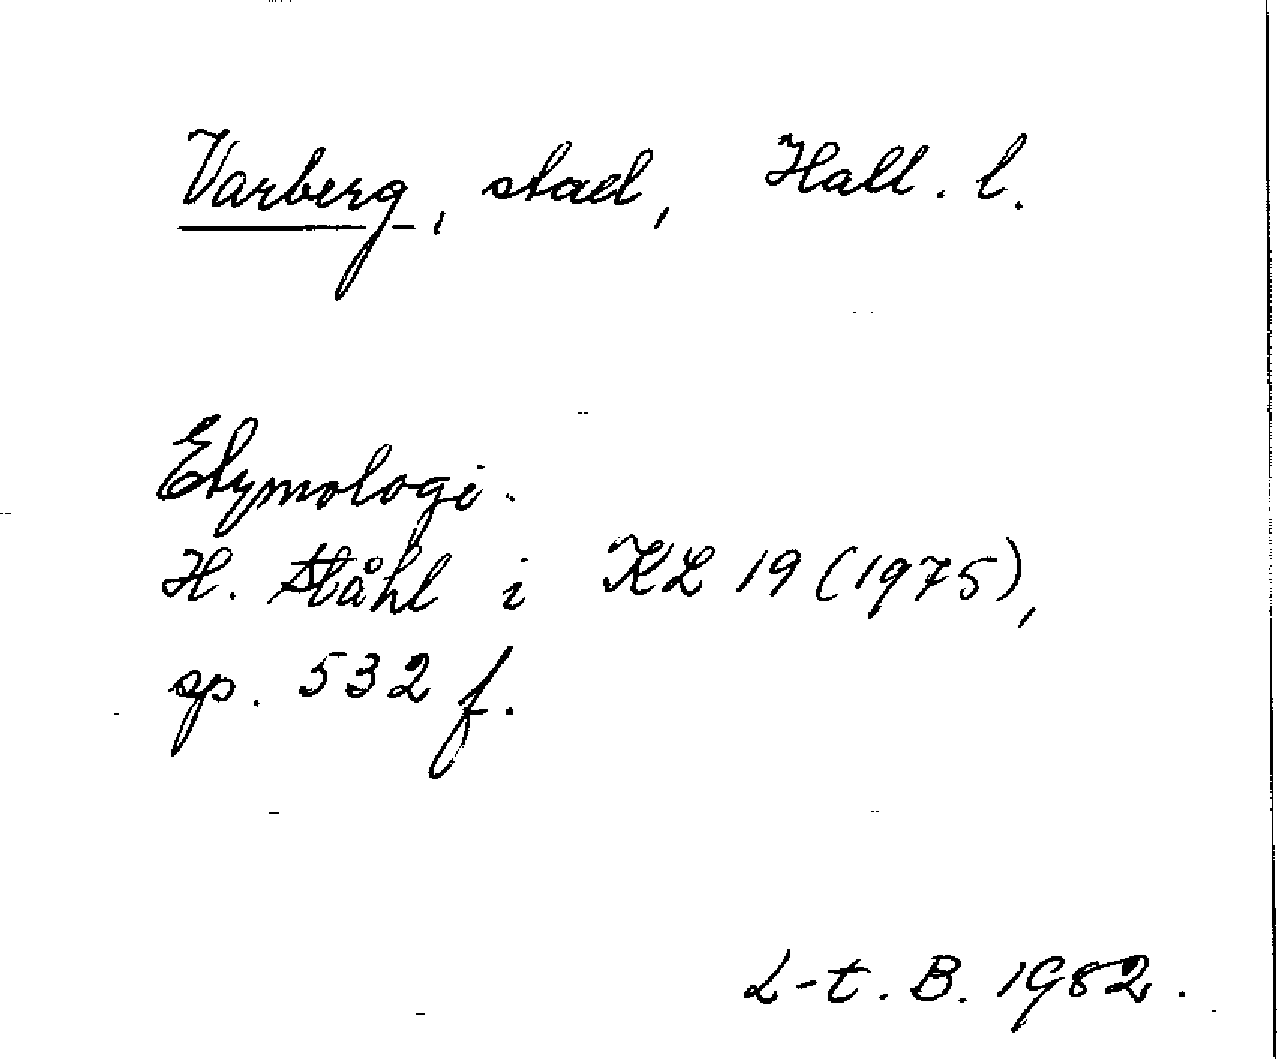 Varberg, stad, Hall. l.
Etymologi.
H. Ståhl i KL 19 (1975),
sp. 532 f.
L-t. B. 1982.